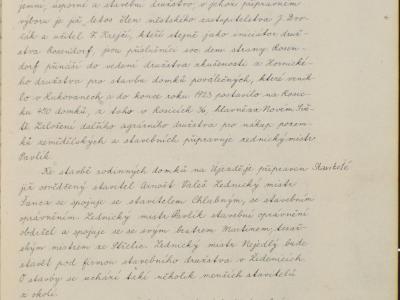 jemní, úsporné a stavební družstvo, v jehož přípravném
výboru je již letos člen městského zastupitelstva J. Dvo-
řák a učitel F. Krejčů, kteří stejně jako iniciátor druž-
stva Rosendorf, jsou příslušníci soc. dem. strany. Rosen-
dorf přináší do vedení družstva zkušenosti z Hornického
družstva pro stavbu domků poválečných, které vznik-
lo v Kukovanech a do konce roku 1923 postavilo na Rosic-
ku 490 domků, z toho v Rosicích 36, hlavně na Novém Sídli-
ti. Založení dalšího agrárního družstva pro nákup pozem-
ků zemědělských a stavebních připravuje zednický mistr
Pavlík.
Ke stavbě rodinných domků na Újezdě je připraven
již osvědčený stavitel Arnošt Valeš. Zednický mistr
Sanca se spojuje se stavitelem Chlabným, se stavebním
oprávněním. Zednický mistr Pavlík stavební oprávnění
obdržel a spojuje se se svým bratrem Martinem, tesař-
ským mistrem ze Střelic. Zednický mistr Nejedlý bude
stavět pod firmou stavebního družstva v Židenicích.
O stavby se uchází také několik menších stavitelů
z okolí.